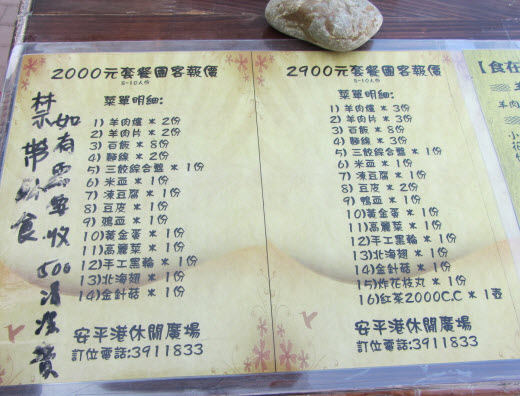 2000元套餐團客報價
8-10人份
菜單明細:
1) 羊肉爐 * 2份
2) 羊肉片 * 2份
3) 百飯 * 8份
4) 麵線 * 2份
5) 三餃綜合盤 * 1份
6) 米血 * 1份
7) 凍豆腐 * 1份
8) 豆皮 * 1份
9) 鴨血 * 1份
10) 黃金蛋 * 1份
11) 高麗菜 * 1份
12) 手工黑輪 * 1份
13) 北海翅 * 1份
14) 金針菇 * 1份
安平港休閒廣場
訂位電話:3911833
禁帶外食
如有需要收500清潔費
2900元套餐團客報價
8-10人份
菜單明細:
1) 羊肉爐 * 3份
2) 羊肉片 * 3份
3) 百飯 * 8份
4) 麵線 * 3份
5) 三餃綜合盤 * 1份
6) 米血 * 1份
7) 凍豆腐 * 1份
8) 豆皮 * 2份
9) 鴨血 * 1份
10) 黃金蛋 * 1份
11) 高麗菜 * 1份
12) 手工黑輪 * 1份
13) 北海翅 * 1份
14) 金針菇 * 1份
15) 炸花枝丸 * 1份
16) 紅茶2000C.C * 1壺
安平港休閒廣場
訂位電話:3911833
【食在
羊肉